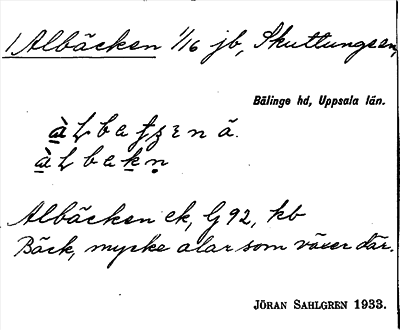 1 Albäcken 1/16 jb, Skuttungeån,
Bälinge hd, Uppsala län.
Albäcken ek, G 92, kb
Bäck, mycke alar som växer där.
JÖRAN SAHLGREN 1933.